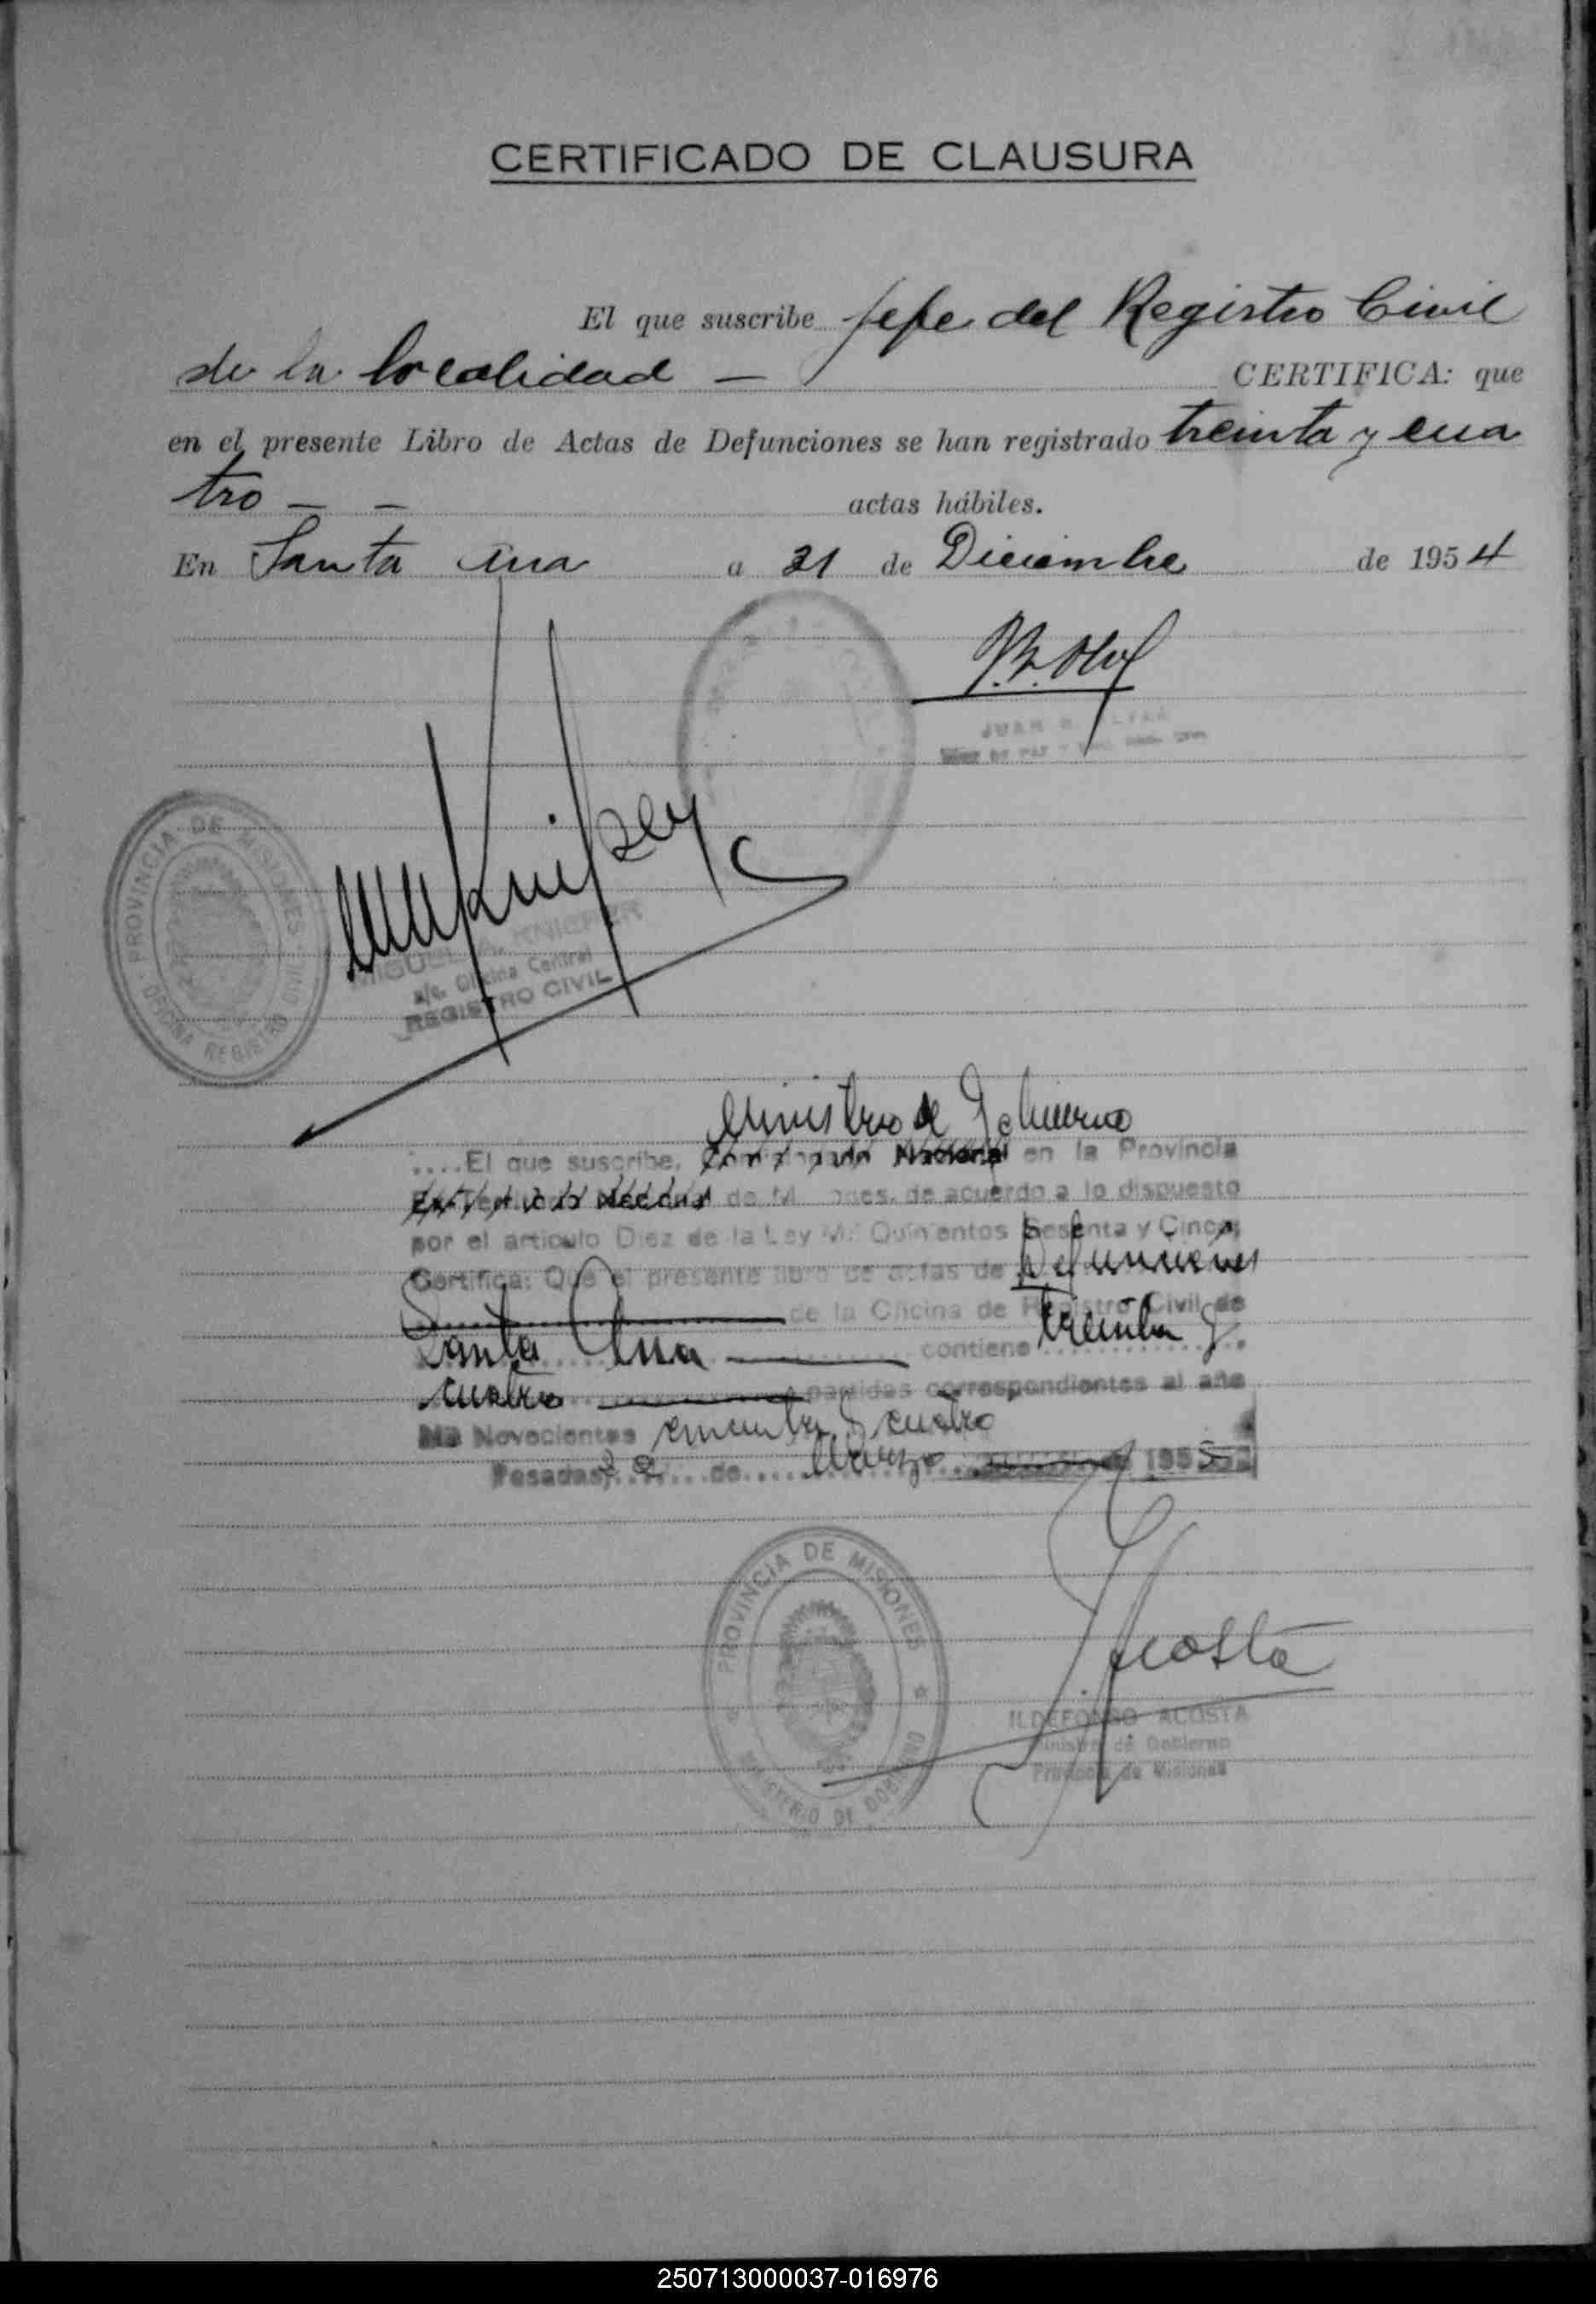 CERTIFICADO DE CLAUSURA
El que suscribe Jefe del Registro Civil
de la localidad — CERTIFICA: que
en el presente Libro de Actas de Defunciones se han registrado treinta y cua
tro — — actas hábiles.
En Santa Ana a 31 de Diciembre de 1954
JUAN B.
PROVINCIA DE MISIONES
OFICINA REGISTRO CIVIL
MIGUEL A. KNIPPER
a/c. Oficina Central
REGISTRO CIVIL
Ministro de Gobierno
....El que suscribe, Comisionado Nacional en la Provincia
Ex-Territorio Nacional de Misiones, de acuerdo a lo dispuesto
por el articulo Diez de la Ley Mil Quinientos Sesenta y Cinco;
Certifica: Que el presente libro de actas de Defunciones
de la Oficina de Registro Civil de
Santa Ana — contiene treinta y
cuatro — partidas correspondientes al año
Mil Novecientos cincuenta y cuatro
Posadas, 22 de Marzo 1955
PROVINCIA DE MISIONES
MINISTERIO DE GOBIERNO
Acosta
ILDEFONSO ACOSTA
Ministro de Gobierno
Provincia de Misiones
250713000037-016976